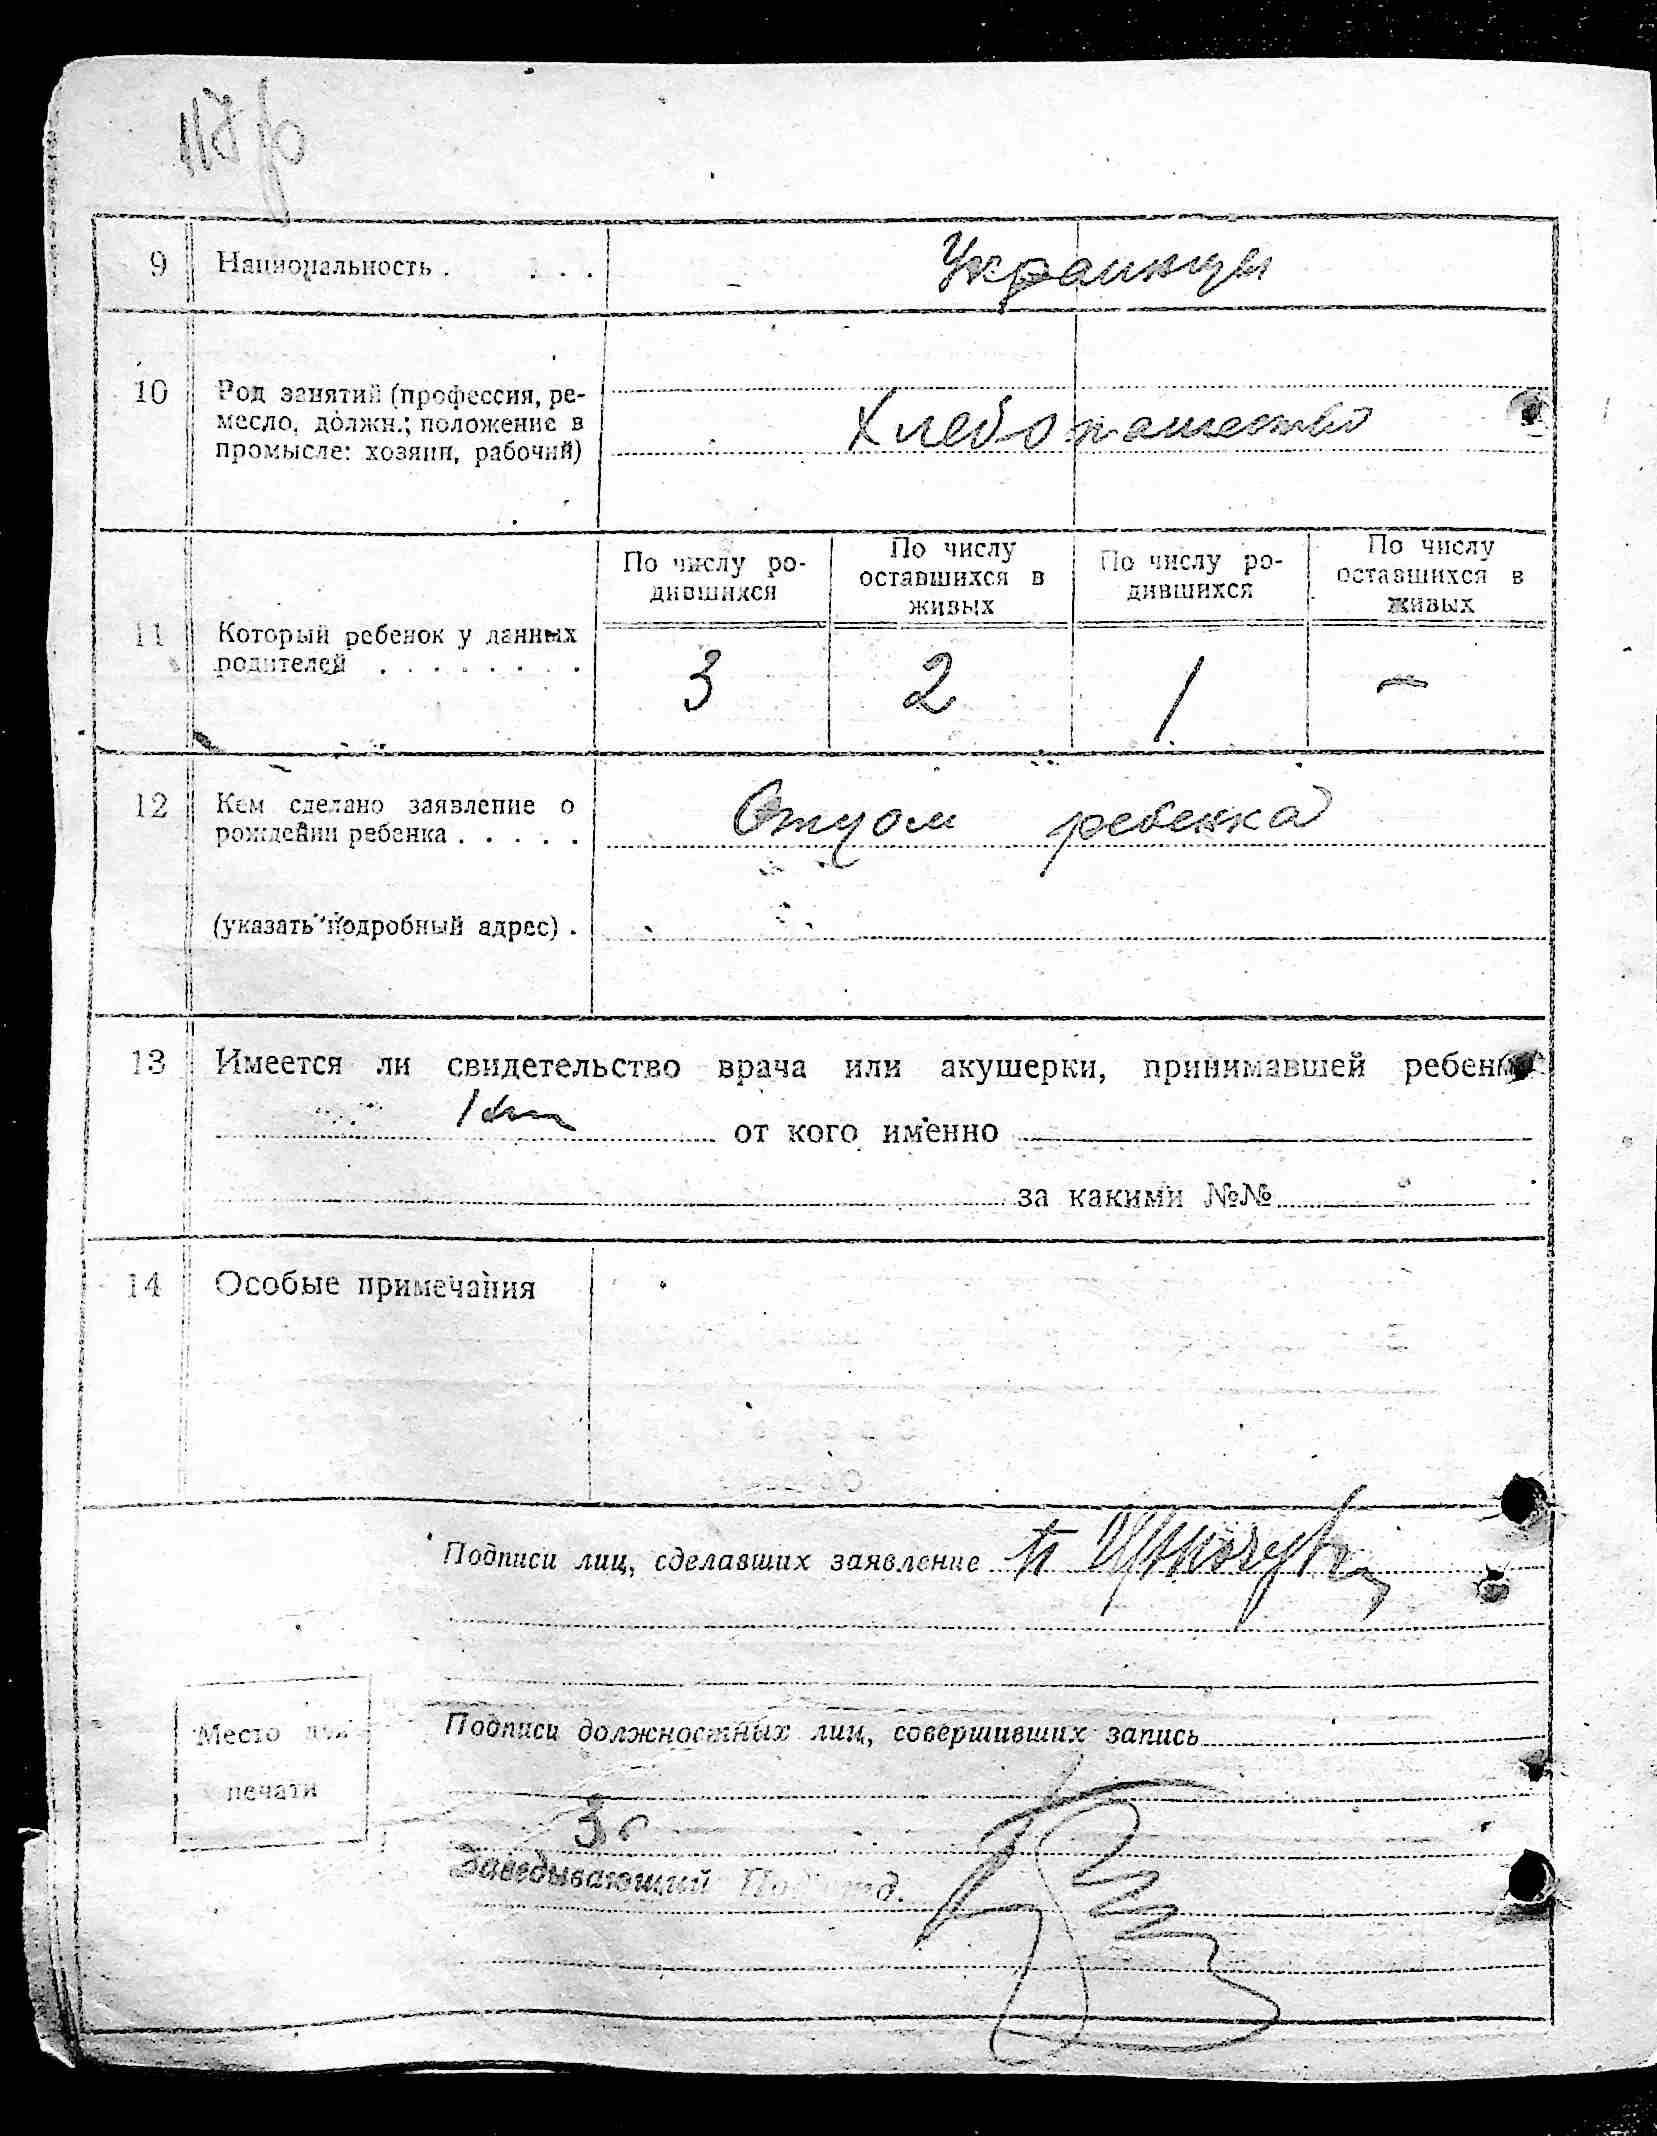 9 Национальность . . . . Украинцы
10 Род занятий (профессия, ре-
месло, должн.; положение в
промысле: хозяин, рабочий)
Хлебопашество
11 Который ребенок у данных
родителей . . . . . . . .
По числу ро-
дившихся
По числу
оставшихся в
живых
По числу ро-
дившихся
По числу
оставшихся в
живых
3 2 1 —
12 Кем сделано заявление о
рождении ребенка . . . . .
Отцом ребенка
(указать подробный адрес) .
13 Имеется ли свидетельство врача или акушерки, принимавшей
от кого именно
за какими №№
14 Особые примечания
Подписи лиц, сделавших заявление
Место для
печати
Подписи должностных лиц, совершивших запись
Заведывающий